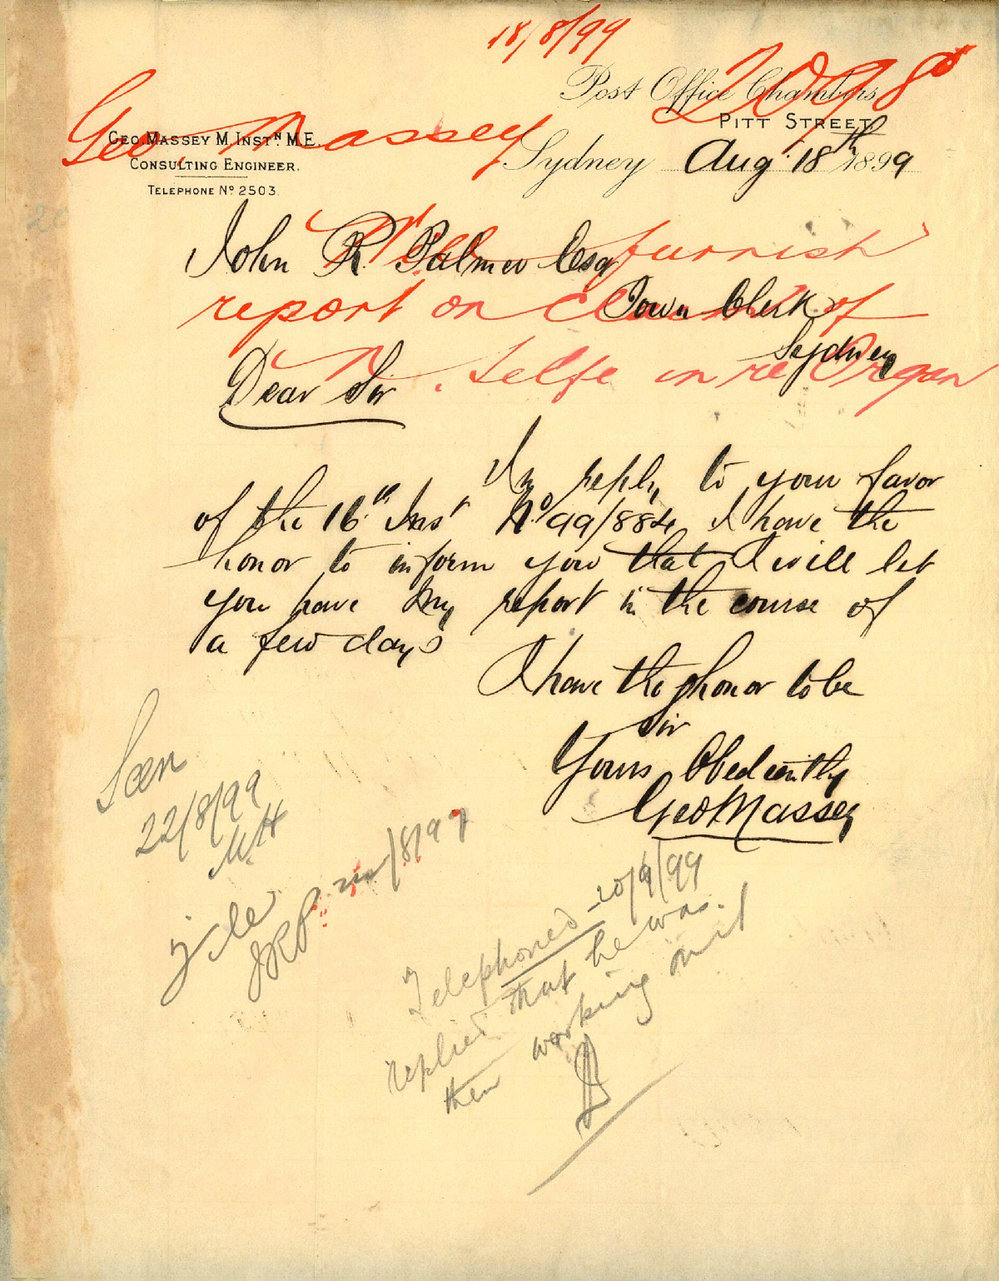 18/8/99
Post Office Chambers
PITT STREET
Geo. Massey
GEO. MASSEY M. INSTN. M.E.
CONSULTING ENGINEER.
TELEPHONE No 2503.
Sydney Aug 18th 1899
Will furnish
report on claim of
N. Selfe in re Organ
John R. Palmer Esq
Town Clerk
Sydney
Dear Sir
In reply to your favor
of the 16th Inst No 99/884 I have the
honor to inform you that I will let
you have my report in the course of
a few days
I have the honor to be
Sir
Yours Obediently
Geo Massey
Seen
22/8/99
file
JRP 22/8/99
Telephoned 20/9/99
replied that he was
then working on it